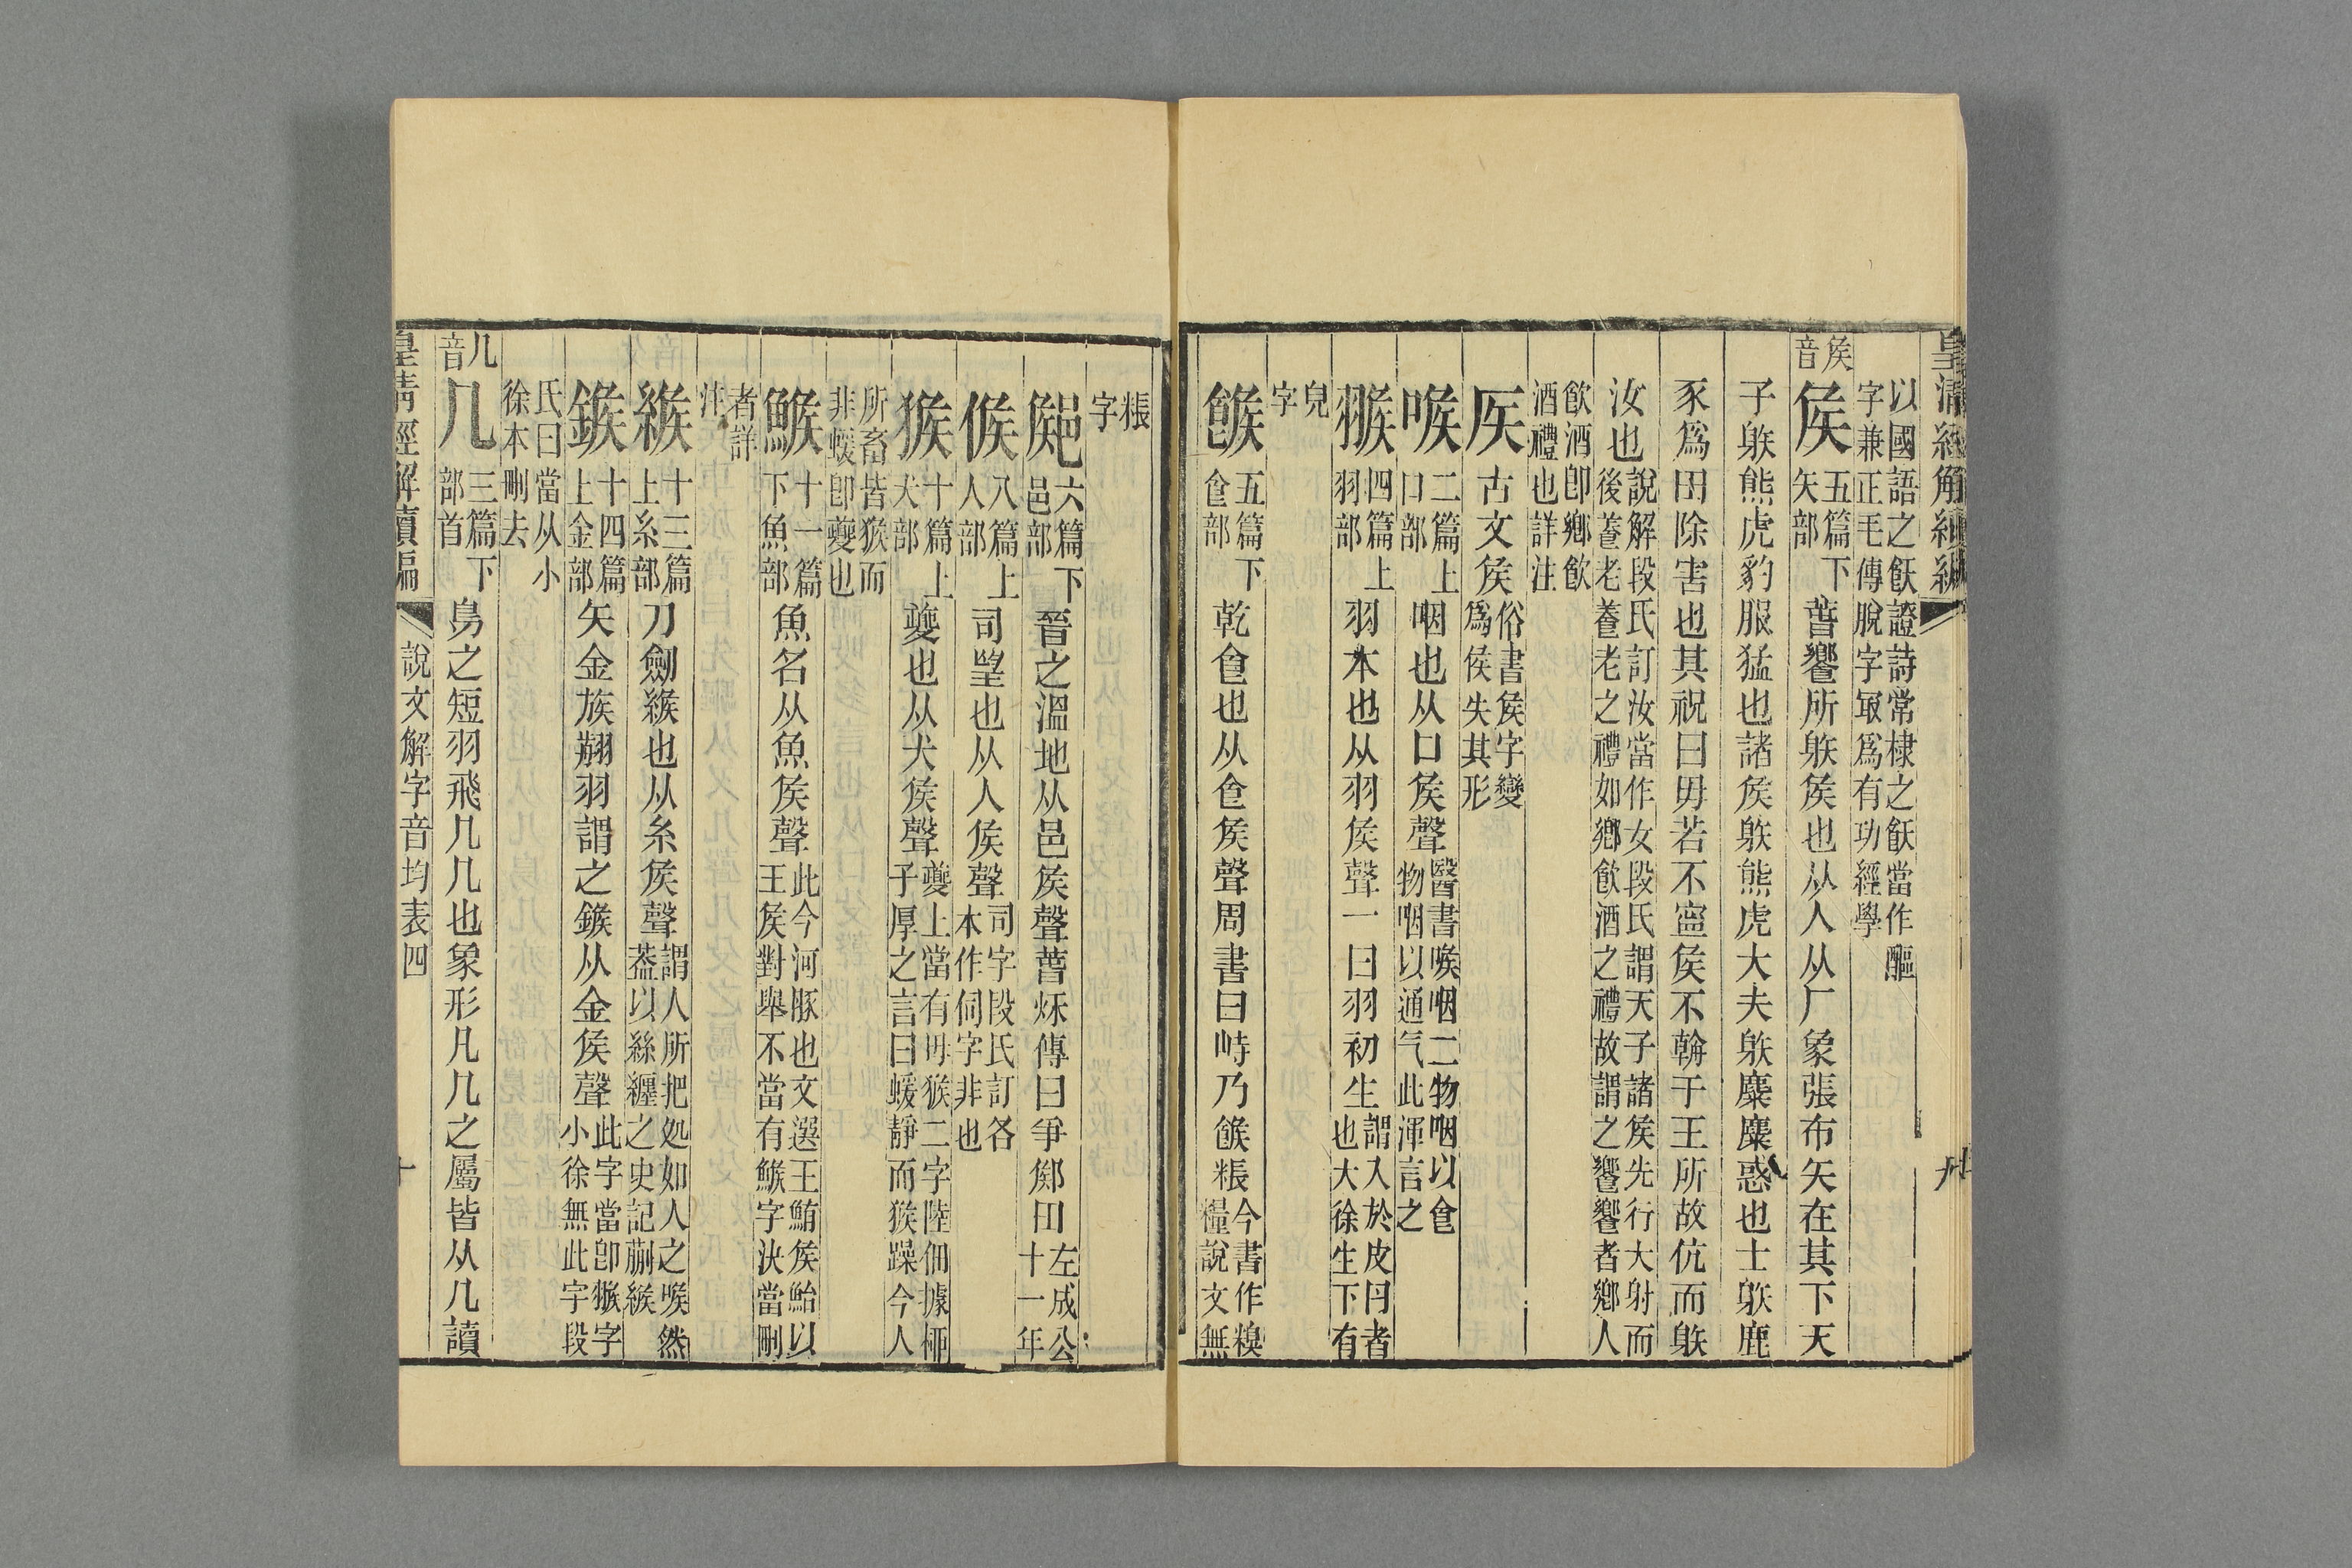 皇清經解續編
以國語之飫證詩常棣之飫當作䤅
字兼正毛傳脫字冣爲有功經學
矦音 矦 五篇下矢部 萅饗所䠶矦也从人从厂象張布矢在其下天
子䠶熊虎豹服猛也諸矦䠶熊虎大夫䠶麋麋惑也士䠶鹿
豕爲田除害也其祝曰毋若不寍矦不朝于王所故伉而䠶
汝也 說解段氏訂汝當作女段氏謂天子諸矦先行大射而後養老養老之禮如鄉飮酒之禮故謂之饗饗者鄉人
飮酒卽鄉飮酒禮也詳注
𥎦 古文矦 俗書矦字變爲侯失其形
喉 二篇上口部 咽也从口矦聲 醫書喉咽二物咽以食物咽以通气此渾言之
翭 四篇上羽部 羽本也从羽矦聲一曰羽初生 謂入於皮肉者也大徐生下有
皃字
餱 五篇下食部 乾食也从食矦聲周書曰峙乃餱粻 今書作糗糧說文無
粻字
鄇 六篇下邑部 晉之溫地从邑矦聲萅秌傳曰爭鄇田 左成公十一年
候 八篇上人部 司望也从人矦聲 司字段氏訂各本作伺字非也
猴 十篇上犬部 夒也从犬矦聲 夒上當有毋猴二字陸佃據柳子厚之言曰蝯靜而猴躁今人
所畜皆猴而非蝯卽夒也
鯸 十一篇下魚部 魚名从魚矦聲 此今河豚也文選王鮪矦鮐以王矦對舉不當有鯸字決當刪
者詳注
緱 十三篇上糸部 刀劒緱也从糸矦聲 謂人所把処如人之喉然葢以絲纏之史記蒯緱
鍭 十四篇上金部 矢金族翦羽謂之鍭从金矦聲 此字當卽翭字小徐無此字段
氏曰當从小徐本刪去
几音 几 三篇下部首 鳥之短羽飛几几也象形凡几之屬皆从几讀
皇淸經解續編
說文解字音均表四
十